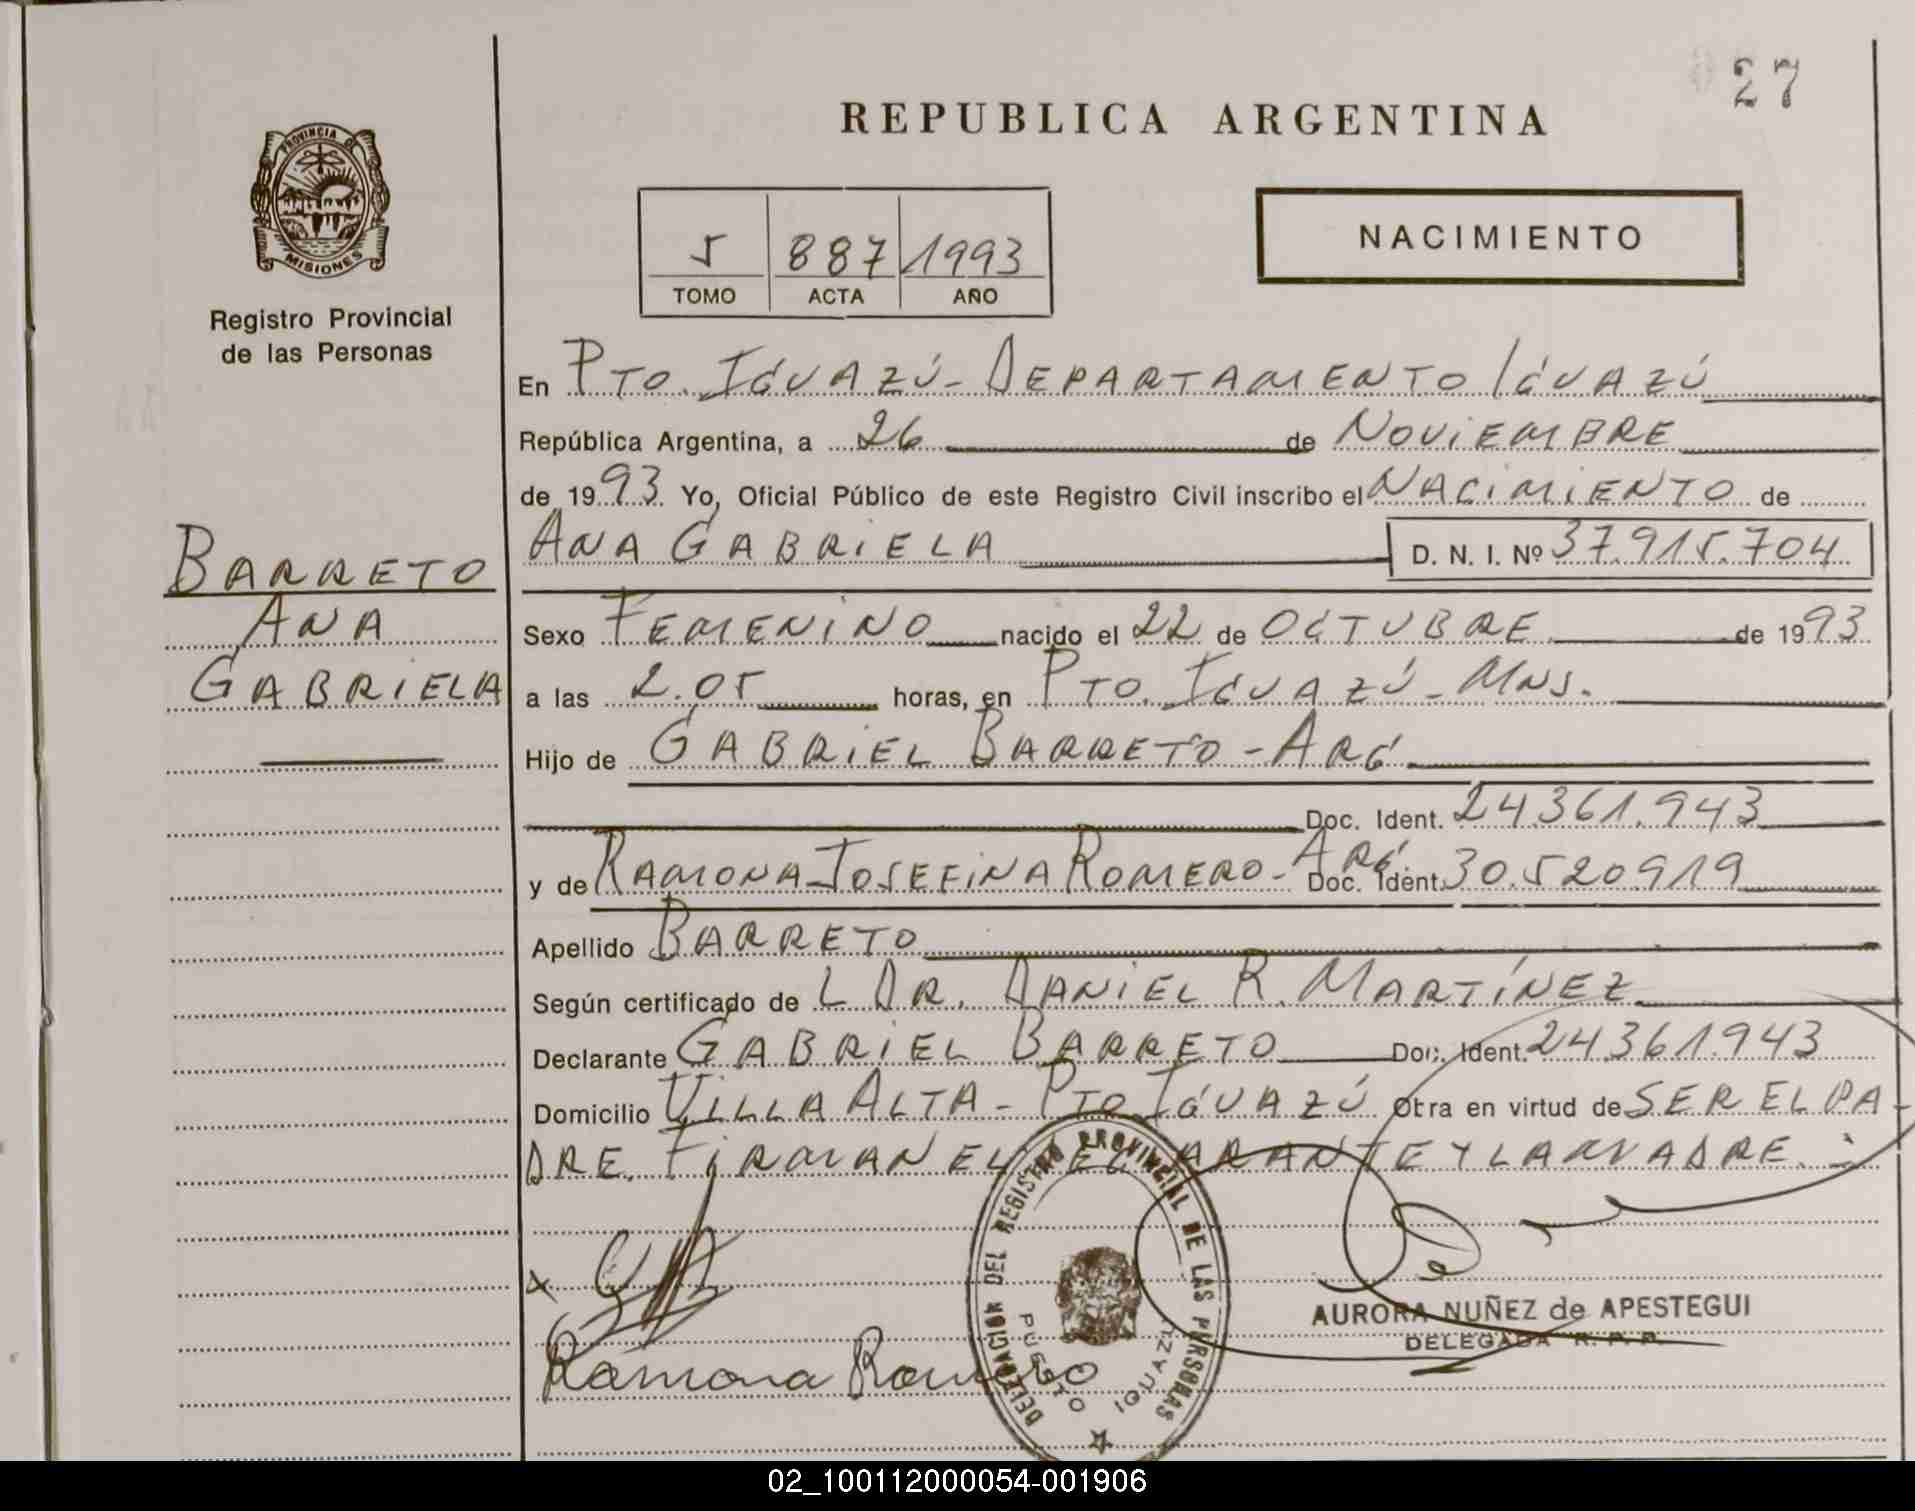 27
REPUBLICA ARGENTINA
PROVINCIA DE
MISIONES
Registro Provincial
de las Personas
5 887 1993
TOMO ACTA AÑO
NACIMIENTO
En PTO. IGUAZÚ - DEPARTAMENTO IGUAZÚ
República Argentina, a 26 de NOVIEMBRE
de 1993. Yo, Oficial Público de este Registro Civil inscribo el NACIMIENTO de
ANA GABRIELA D. N. I. Nº 37.915.704
BARRETO
ANA
GABRIELA
Sexo FEMENINO nacido el 22 de OCTUBRE de 1993
a las 2.05 horas, en PTO. IGUAZÚ - MNS.
Hijo de GABRIEL BARRETO - ARG.
Doc. Ident. 24.361.943
y de RAMONA JOSEFINA ROMERO - ARG. Doc. Ident. 30.520.919
Apellido BARRETO
Según certificado de L DR. DANIEL R. MARTÍNEZ
Declarante GABRIEL BARRETO Doc. Ident. 24.361.943
Domicilio VILLA ALTA - PTO. IGUAZÚ Otra en virtud de SER EL PA-
DRE. FIRMAN EL DECLARANTE Y LA MADRE.
DELEGACION DEL REGISTRO PROVINCIAL DE LAS PERSONAS
PUERTO IGUAZU
AURORA NUÑEZ de APESTEGUI
DELEGADA R. P. P.
Ramona Romero
02_100112000054-001906